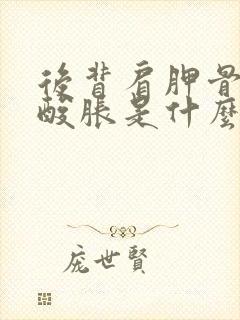 後背肩胛骨
酸脹是什麼
庞世賢